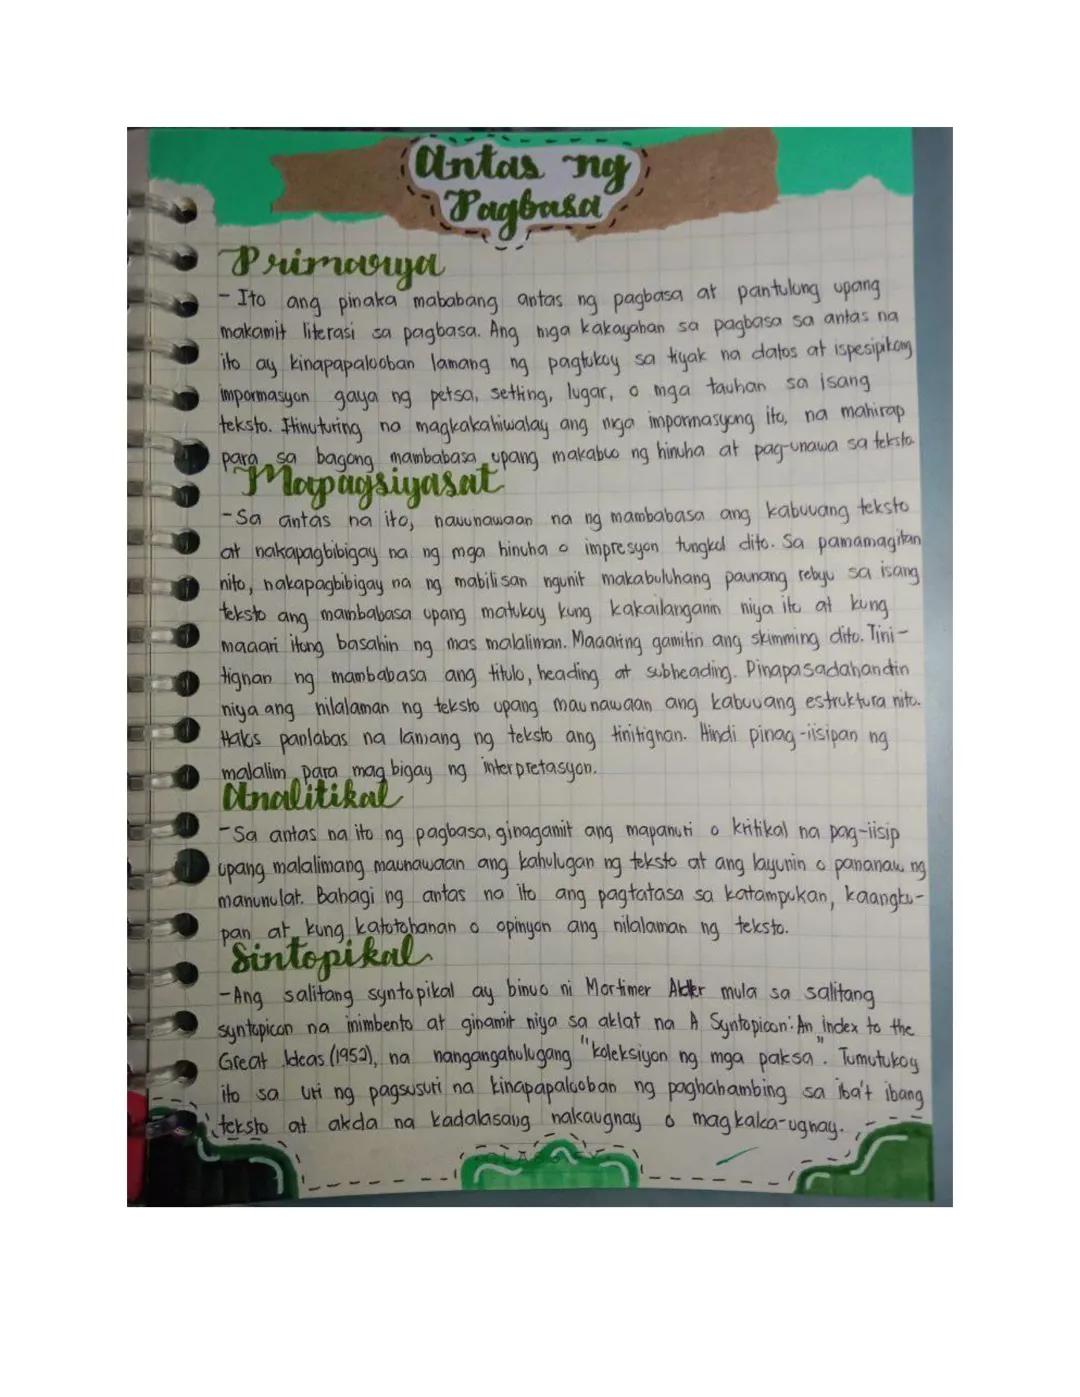 Antas ng
Pagbasa
Primarya
- Ito ang pinaka mababang antas ng pagbasa at pantulong upang
makamit literasi sa pagbasa. Ang mga kakayahan sa pagbasa sa antas na
ito ay kinapapalooban lamang ng pagtukoy sa tiyak na datos at ispesipikong
impormasyon gaya ng petsa, setting, lugar, o mga tauhan sa isang
teksto. Itinuturing na magkakahiwalay ang mga impormasyong ito, na mahirap
para sa bagong mambabasa upang makabuo ng hinuha at pag-unawa sa teksto
Mapagsiyasat
- Sa antas na ito, nauunawaan na ng mambabasa ang kabuuang teksto
at nakapagbibigay na ng mga hinuha o impresyon tungkol dito. Sa pamamagitan
nito, nakapagbibigay na ng mabilisan ngunit makabuluhang paunang rebyu sa isang
teksto ang mambabasa upang matukoy kung kakailanganin niya ito at kung
maaari itong basahin ng mas malaliman. Maaaring gamitin ang skimming dito. Tini-
tignan ng mambabasa ang titulo, heading at subheading. Pinapasadahandin
niya ang nilalaman ng teksto upang maunawaan ang kabuuang estruktura nito.
Halos panlabas na lamang ng teksto ang tinitignan. Hindi pinag-iisipan ng
malalim para magbigay ng interpretasyon.
Analitikal
- Sa antas na ito ng pagbasa, ginagamit ang mapanuri o kritikal na pag-iisip
upang malalimang maunawaan ang kahulugan ng teksto at ang layunin o pananaw ng
manunulat. Bahagi ng antas na ito ang pagtatasa sa katampukan, kaangku-
pan at kung katotohanan o opinyon ang nilalaman ng teksto.
Sintopikal
- Ang salitang syntopikal ay binuo ni Mortimer Adler mula sa salitang
syntopicon na inimbento at ginamit niya sa aklat na A Syntopicon: An index to the
Great Ideas (1952), na nangangahulugang "koleksiyon ng mga paksa". Tumutukoy
ito sa uri ng pagsusuri na kinapapalooban ng paghahambing sa iba't ibang
teksto at akda na kadalasang nakaugnay o magkaka-ugnay.